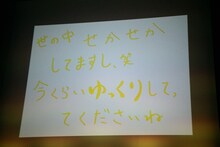 世の中せかせか
してますし、笑
今くらいゆっくりして、
てくださいね